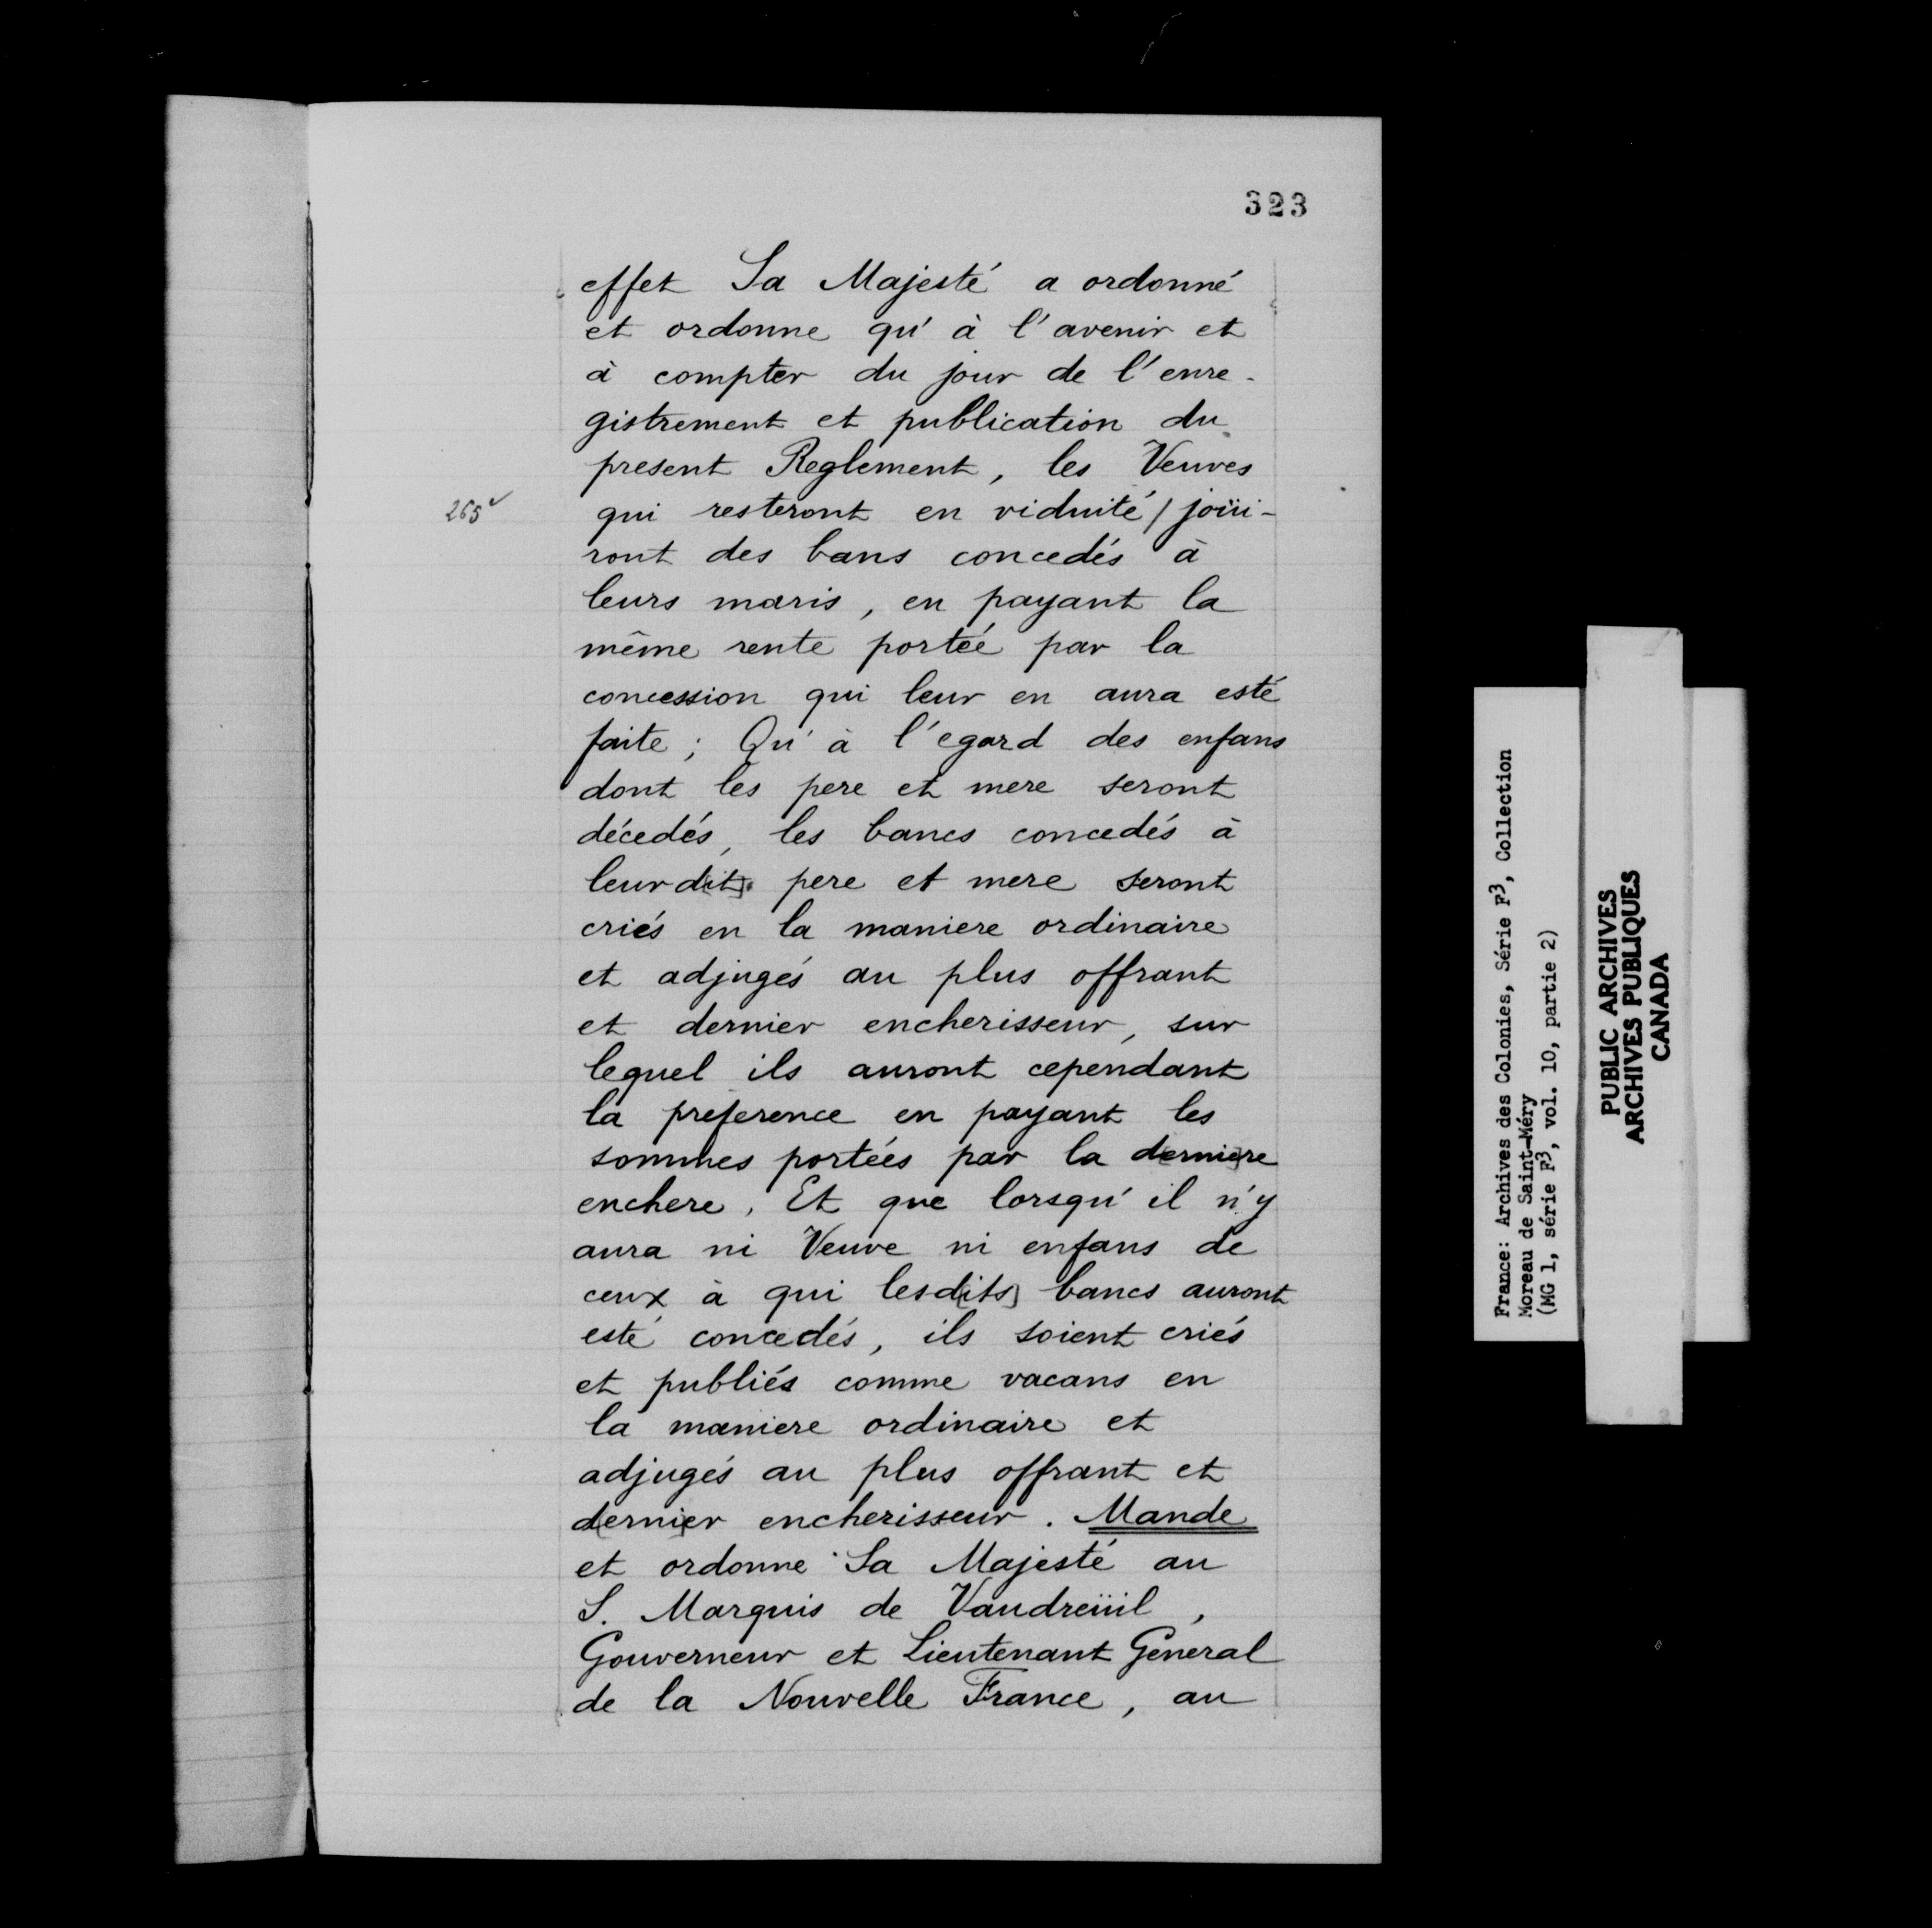 323
effet Sa Majesté a ordonné
et ordonne qu'à l'avenir et
à compter du jour de l'enre-
gistrement et publication du
present Reglement, les Veuves
265v
qui resteront en viduité / joüi-
ront des bans concedés à
leurs maris, en payant la
même rente portée par la
concession qui leur en aura esté
faite; Qu'à l'egard des enfans
dont les pere et mere seront
décedés, les bancs concedés à
leurd[it] pere et mere seront
criés en la maniere ordinaire
et adjugés au plus offrant
et dernier encherisseur, sur
lequel ils auront cependant
la preference en payant les
sommes portées par la d[erni]ere
enchere, Et que lorsqu'il n'y
aura ni Veuve ni enfans de
ceux à qui lesd[its] bancs auront
esté concedés, ils soient criés
et publiés comme vacans en
la maniere ordinaire et
adjugés au plus offrant et
d[erni]er encherisseur. Mande
et ordonne Sa Majesté au
S. Marquis de Vaudreüil,
Gouverneur et Lieutenant General
de la Nouvelle France, au
France: Archives des Colonies, Série F3, Collection
Moreau de Saint-Méry
(MG 1, série F3, vol. 10, partie 2)
PUBLIC ARCHIVES
ARCHIVES PUBLIQUES
CANADA